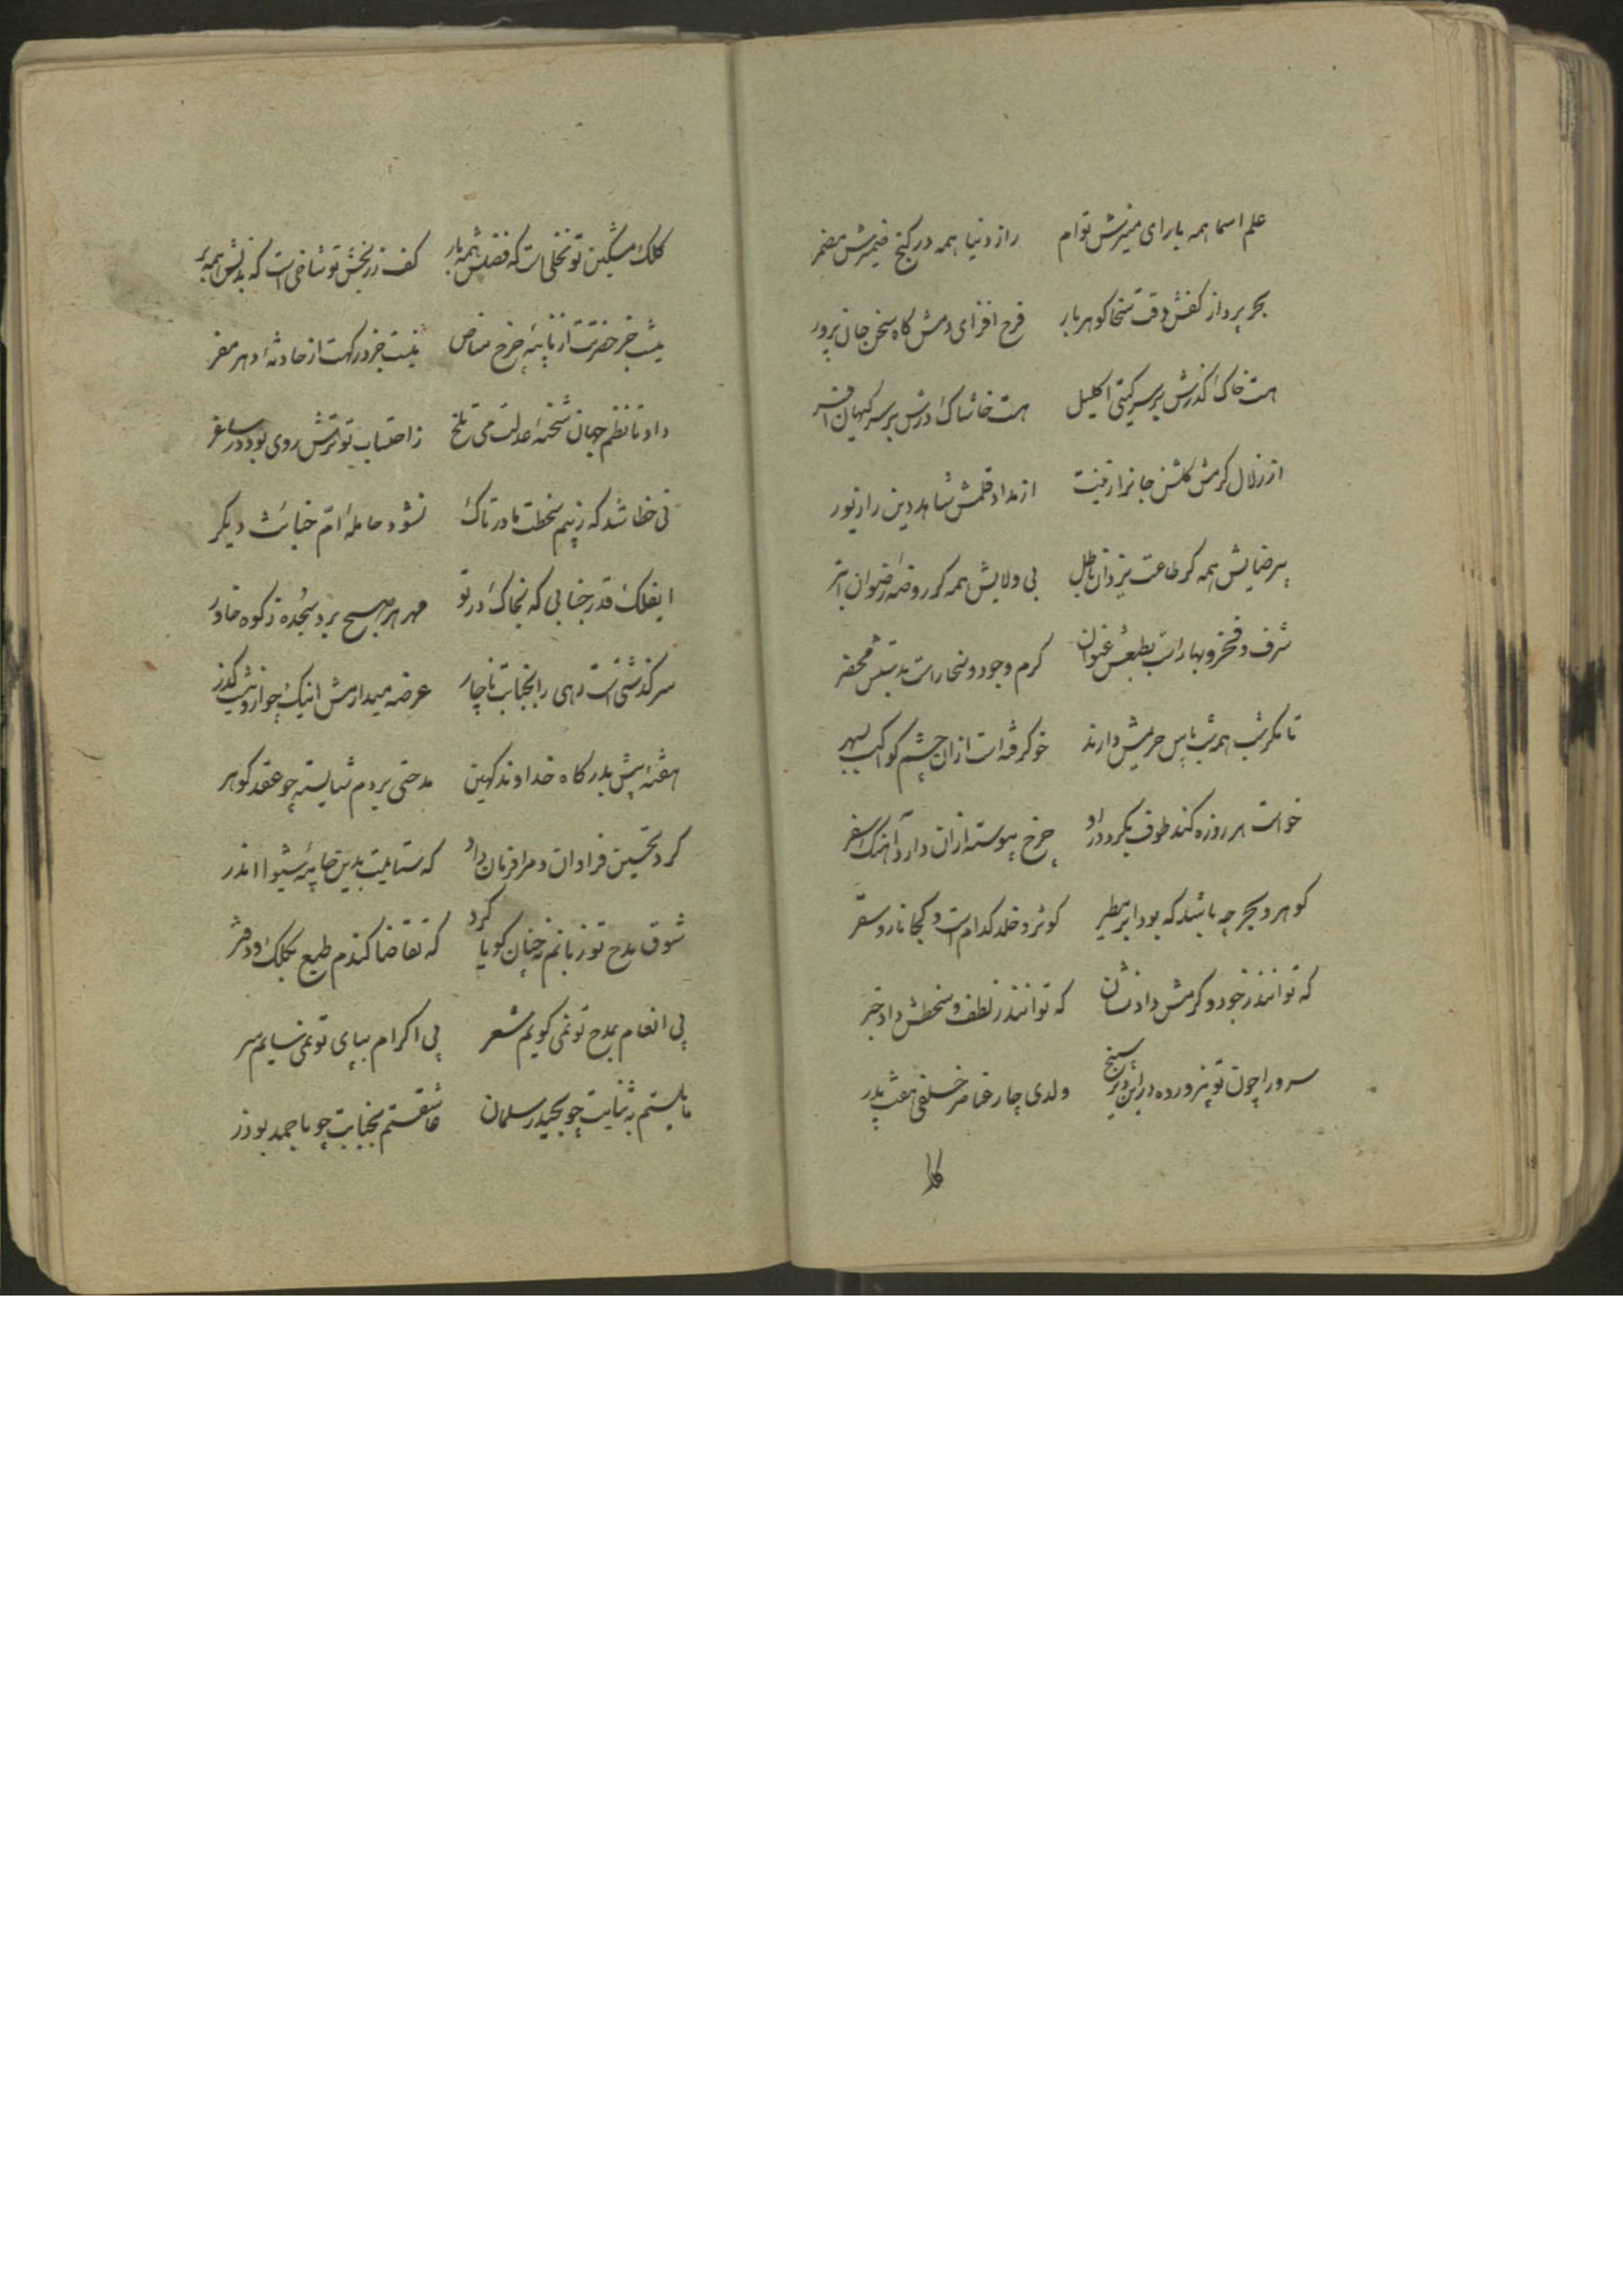 علم اسما همه با رای منیرش توام راز دنیا همه در کنج ضمیرش مضمر
بحر پرداز کفش وقت سخا کوهر بار فرح افزای دمش کاه سخن جان پرور
هست خاک کذرش بر سر کیتی اکلیل هست خاشاک درش بر سر کیهان افسر
از زلال کرمش کلشن جانرا زینت از مداد قلمش شاهد دین را زیور
بیرضایش همه کر طاعت یزدان باطل بی ولایش همه کر روضه رضوان ابتر
شرف و فخر و بها راست بطبعش عنوان کرم وجود و سخا راست بدستش محضر
تا مکر شب همه شب پاس حریمش دارند خو کرفه است ازان چشم کواکب بسهر
خواست هر روزه کند طوف بکرد در او چرخ پیوسته ازان دارد آهنک سفر
کوهر و بحر چه باشد که بود ابر مطیر کوثر و خلد کدام است و کجا نار و سقر
که توانند ز جود و کرمش داد نشان که توانند ز لطف و سخطش داد خبر
سرورا چون تو نپرورده در این دیر سپنج ولدی چار عناصر خلفی هفت پدر
کلک
کلک مشکین تو نخلی است که فضلش همه بار کف زر بخش تو شاخی است که بذلش همه بر
نیست جز حضرتت از نایبه چرخ مناص نیست جز درکهت از حادثه دهر مفر
داد تا نظم جهان شحنه عدلت می تلخ ز احتساب تو ترش روی بود در ساغر
نی خطا شد که ز بیم سخطت مادر تاک نشود حامله ام خبائث دیکر
ایفلک قدر جنابی که بخاک در تو مهر هر صبح برد سجده ز کوه خاور
سرکذشتی است رهی را بجنابت ناچار عرضه میدارمش اینک چو از و نیست کذر
هفته پیش بدرکاه خداوند کهین مدحتی بردم شایسته چو عقد کوهر
کرد تحسین فراوان و مرا فرمان داد که ستایمت بدین چامه شیوا اندر
شوق مدح تو زبانم نه چنان کویا کرد که تقاضا کندم طبع بکلک و دفتر
پی انعام بمدح تو نمی کویم شعر پی اکرام بپای تو نمی سایم سر
مایلستم به ثنایت چو بحیدر سلمان عاشقستم بجنابت چو باحمد بوذر